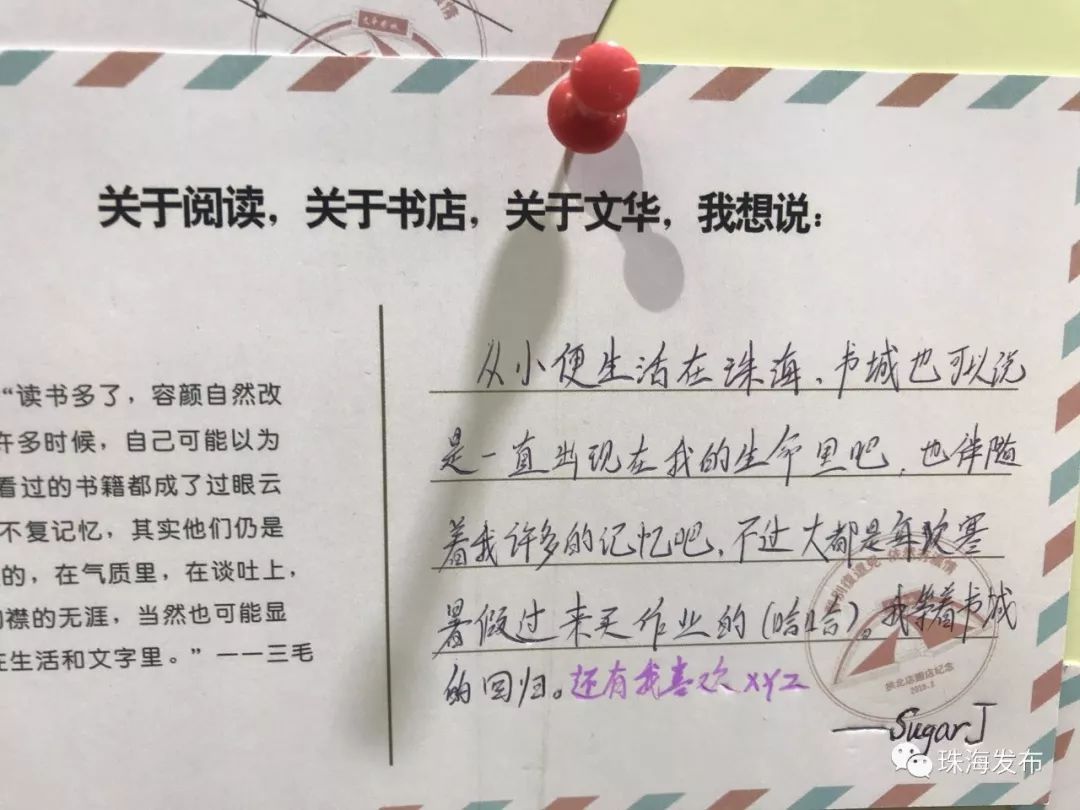 关于阅读，关于书店，关于文华，我想说：
“读书多了，容颜自然改
许多时候，自己可能以为
看过的书籍都成了过眼云
不复记忆，其实他们仍是
的，在气质里，在谈吐上，
襟的无涯，当然也可能显
在生活和文字里。”——三毛
从小便生活在珠海、书城也可以说
是一直出现在我的生命里吧，也伴随
着我许多的记忆吧，不过大都是每次寒
暑假过来买作业的（哈哈）。我等着书城
的回归。还有我喜欢XYZ
——SugarJ
拱北店撤店纪念
2018.8
珠海发布